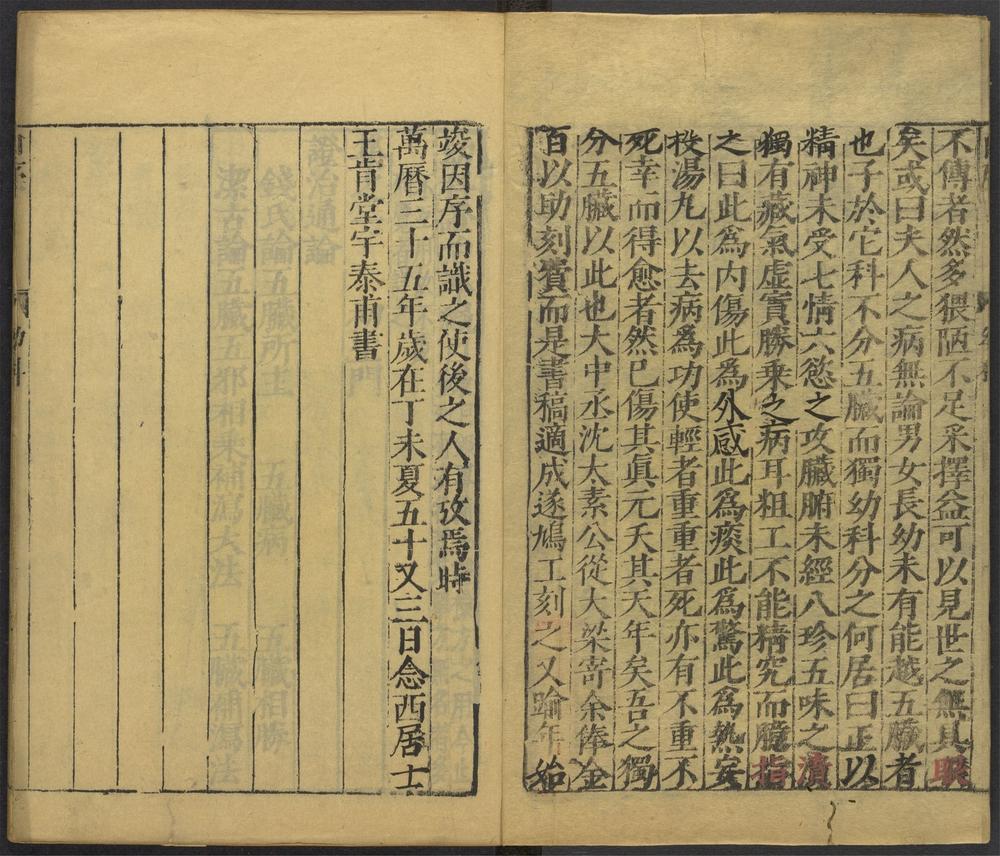 不傳者然多猥陋不足采擇益可以見世之無其
矣或曰夫人之病無論男女長幼未有能越五臟者
也子於它科不分五臟而獨幼科分之何居曰正以
精神未受七情六慾之攻臟腑未經八珍五味之漬
獨有藏氣虛實勝乗之病耳粗工不能精究而臆指
之曰此為内傷此為外感此為痰此為驚此為熱妄
投湯丸以去病為功使輕者重重者死亦有不重不
死幸而得愈者然已傷其眞元夭其天年矣吾之獨
分五臟以此也大中丞沈太素公從大梁寄余俸金
百以助刻貲而是書稿適成遂鳩工刻之又踰年始
竣因序而識之使後之人有攷焉時
萬曆三十五年歲在丁未夏五十又三日念西居士
王肯堂宇泰甫書